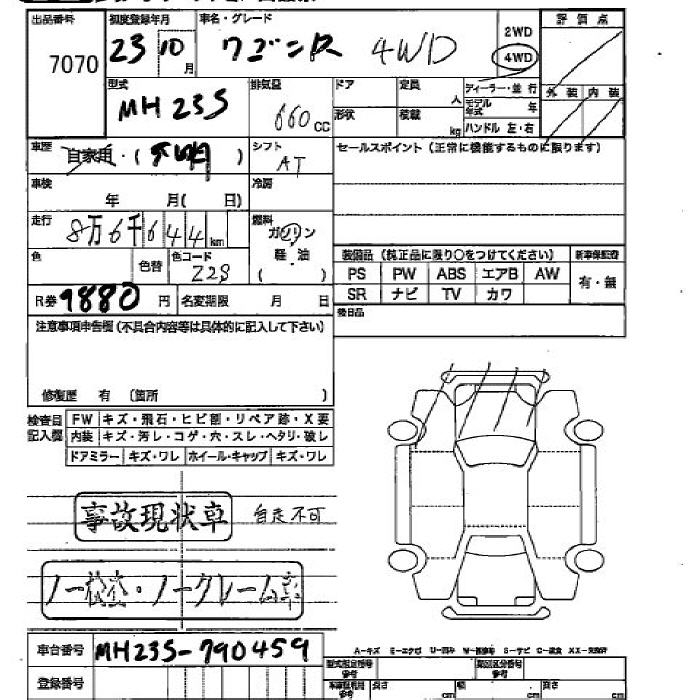 出品番号
7070
初度登録年月
23 10月
車名・グレード
ワゴンR 4WD
2WD
4WD
評価点
型式
MH23S
排気量
660cc
ドア
定員
人
形状
積載
kg
ディーラー・並行
モデル年式 年
ハンドル 左・右
外装 内装
車歴
自家用・( )
シフト
AT
セールスポイント(正常に機能するものに限ります)
車検
年 月( 日)
冷房
走行
8万6千644km
燃料
ガソリン
軽・油
( )
色
色替
色コード
Z2S
装備品(純正品に限り○をつけてください)
新車保証書
PS PW ABS エアB AW
有・無
SR ナビ TV カワ
R券 9880円
名変期限 月 日
後日品
注意事項申告欄(不具合内容等は具体的に記入して下さい)
修復歴 有 〔箇所 〕
検査員
記入欄
FW キズ・飛石・ヒビ割・リペア跡・X要
内装 キズ・汚レ・コゲ・穴・スレ・ヘタリ・破レ
ドアミラー キズ・ワレ ホイール・キャップ キズ・ワレ
事故現状車 自走不可
ノー検査・ノークレーム車
車台番号
MH23S-790459
登録番号
A-キズ
型式指定番号
類別区分番号
長さ cm 幅 cm 高さ cm